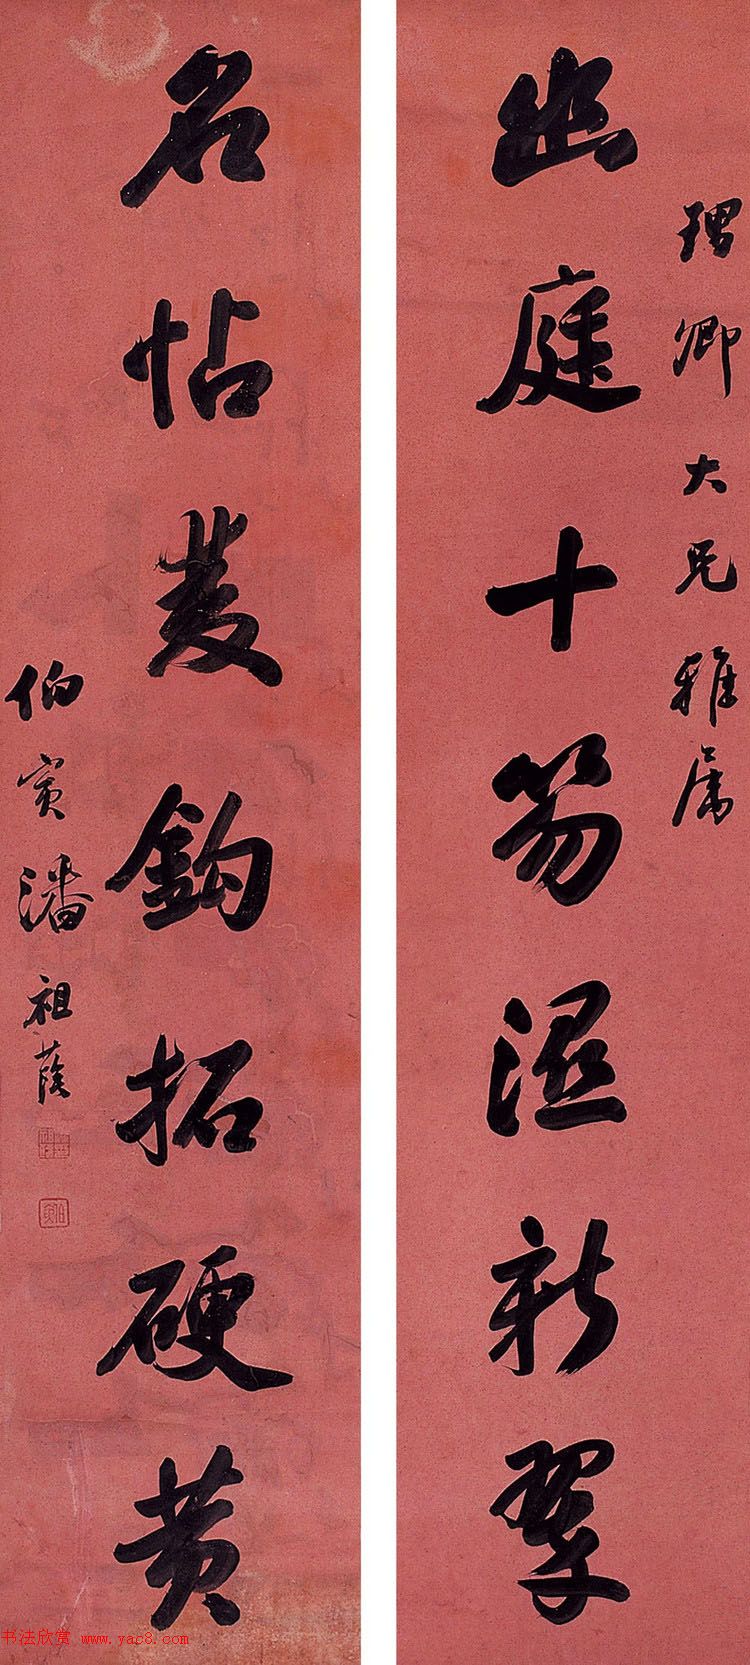 卿大兄雅属
幽庭十笏湿新翠
名帖雙鉤拓硬黄
伯寅潘祖蔭
伯寅
书法欣赏 www.yac8.com